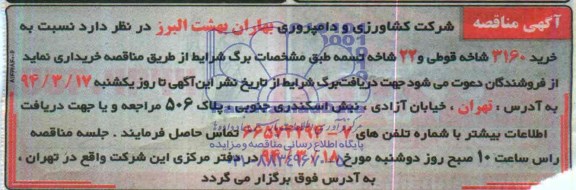 آگهی مناقصه
شرکت کشاورزی و دامپروری بهاران بهشت البرز در نظر دارد نسبت به
خرید ۳۱۶۰ شاخه قوطی و ۲۲ شاخه تسمه طبق مشخصات برگ شرایط از طریق مناقصه خریداری نماید
از فروشندگان دعوت می شود جهت دریافت برگ شرایط از تاریخ نشر این آگهی تا روز یکشنبه ۹۴/۳/۱۷
به آدرس : تهران ، خیابان آزادی ، نبش اسکندری جنوبی ، پلاک ۵۰۶ مراجعه و یا جهت دریافت
اطلاعات بیشتر با شماره تلفن های ۷-۶۶۵۷۲۲۹۶ تماس حاصل فرمایند . جلسه مناقصه
راس ساعت ۱۰ صبح روز دوشنبه مورخ ۹۴/۳/۱۸ در دفتر مرکزی این شرکت واقع در تهران ،
به آدرس فوق برگزار می گردد
پایگاه اطلاع رسانی مناقصه و مزایده